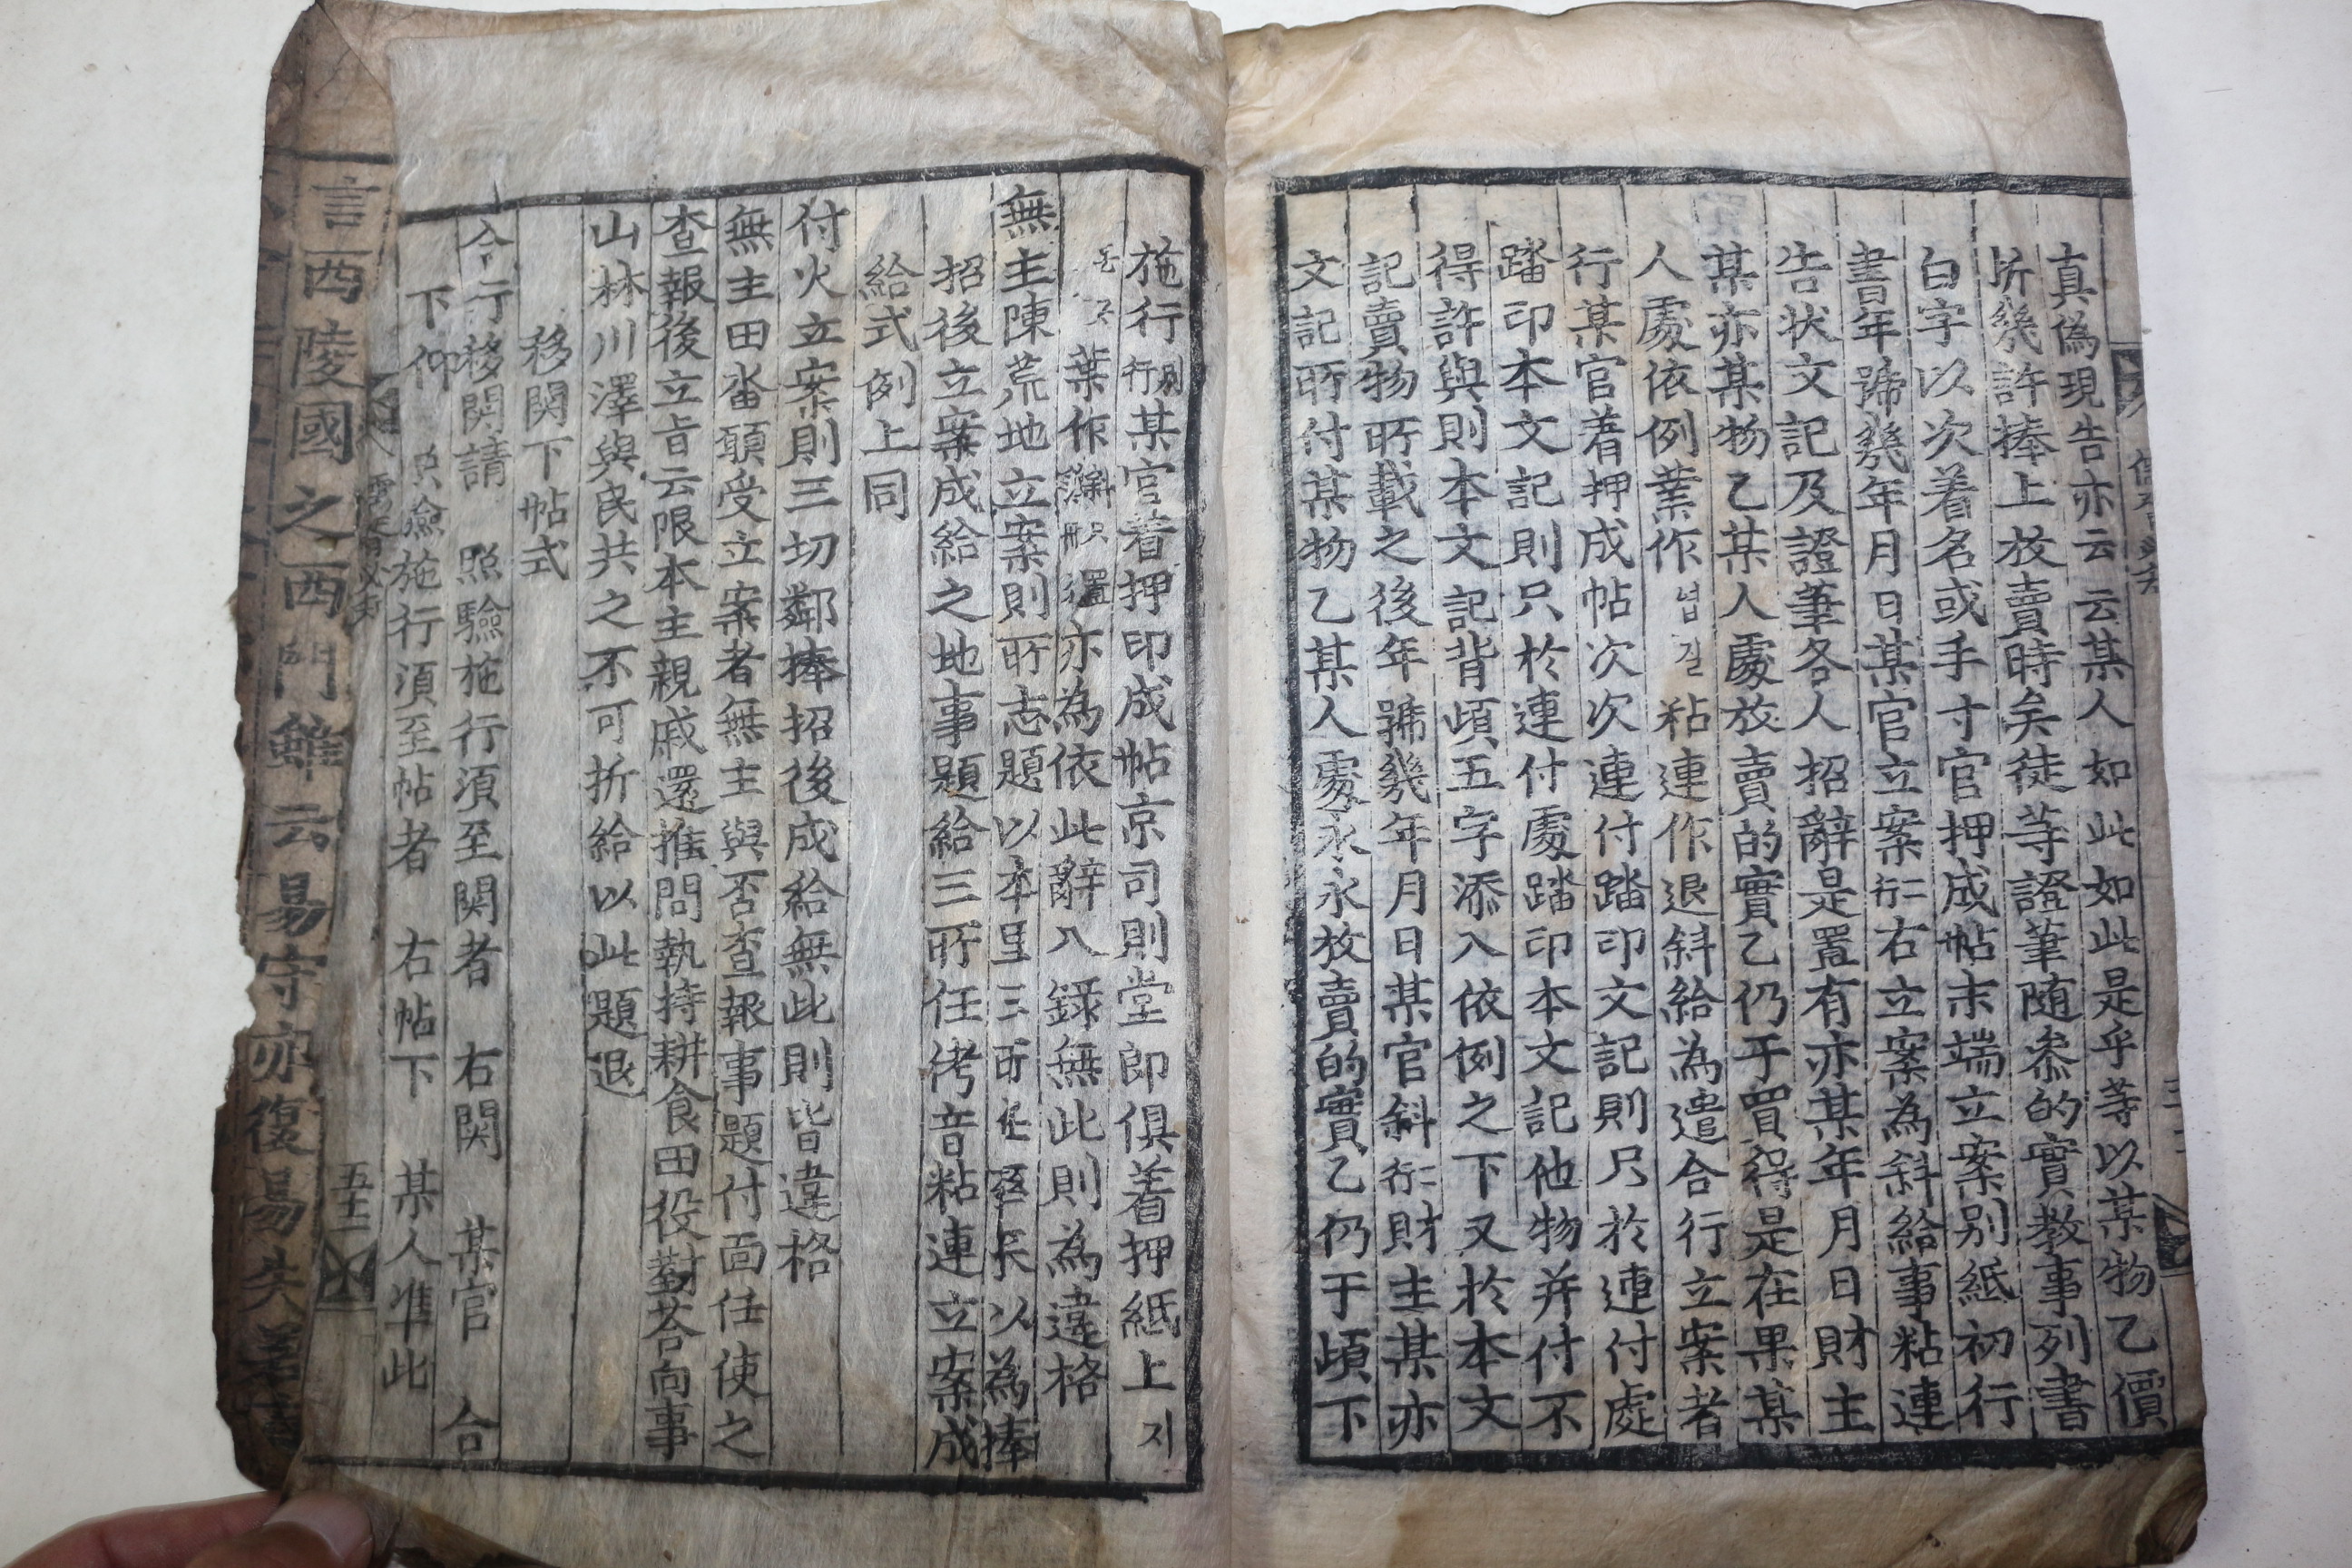 真偽現告亦云云某人如此如此是乎等以某物乙價
所幾許捧上放賣時矣徒等證筆随參的實教事列書
白字以次着名或手寸官押成帖末端立案別紙初行
書年號幾年月日某官立案行二右立案為斜給事粘連
告状文記及證筆各人招辭是置有亦某年月日財主
某亦某物乙某人處放賣的實乙仍于買得是在果某
人處依例業作넙길粘連作退斜給為遣合行立案者
行某官着押成帖次次連付踏印文記則只於連付處
踏印本文記則只於連付處踏印本文記他物并付不
得許與則本文記背頉五字添入依例之下又於本文
記賣物所載之後年號幾年月日某官斜行二財主某亦
文記所付某物乙某人處永永放賣的實乙仍于頉下
施行行別某官着押印成帖京司則堂郎俱着押紙上지
葉作 置亦為依此辭入錄無此則為違格
無主陳荒地立案則所志題以本里三所任 以為捧
招後立案成給之地事題給三所任侤音粘連立案成
給式例上同
付火立案則三切鄰捧招後成給無此則皆違格
無主田畓願受立案者無主與否查報事題付面任使之
查報後立旨云限本主親戚還推問執持耕食田役對答向事
山林川澤與民共之不可折給以此題退
移関下帖式
今行移関請 照驗施行須至関者 右関 某官 合
下仰 照驗施行須至帖者 右帖下 某人准此
五十二
言西陵國之西門雖云易守亦復易失